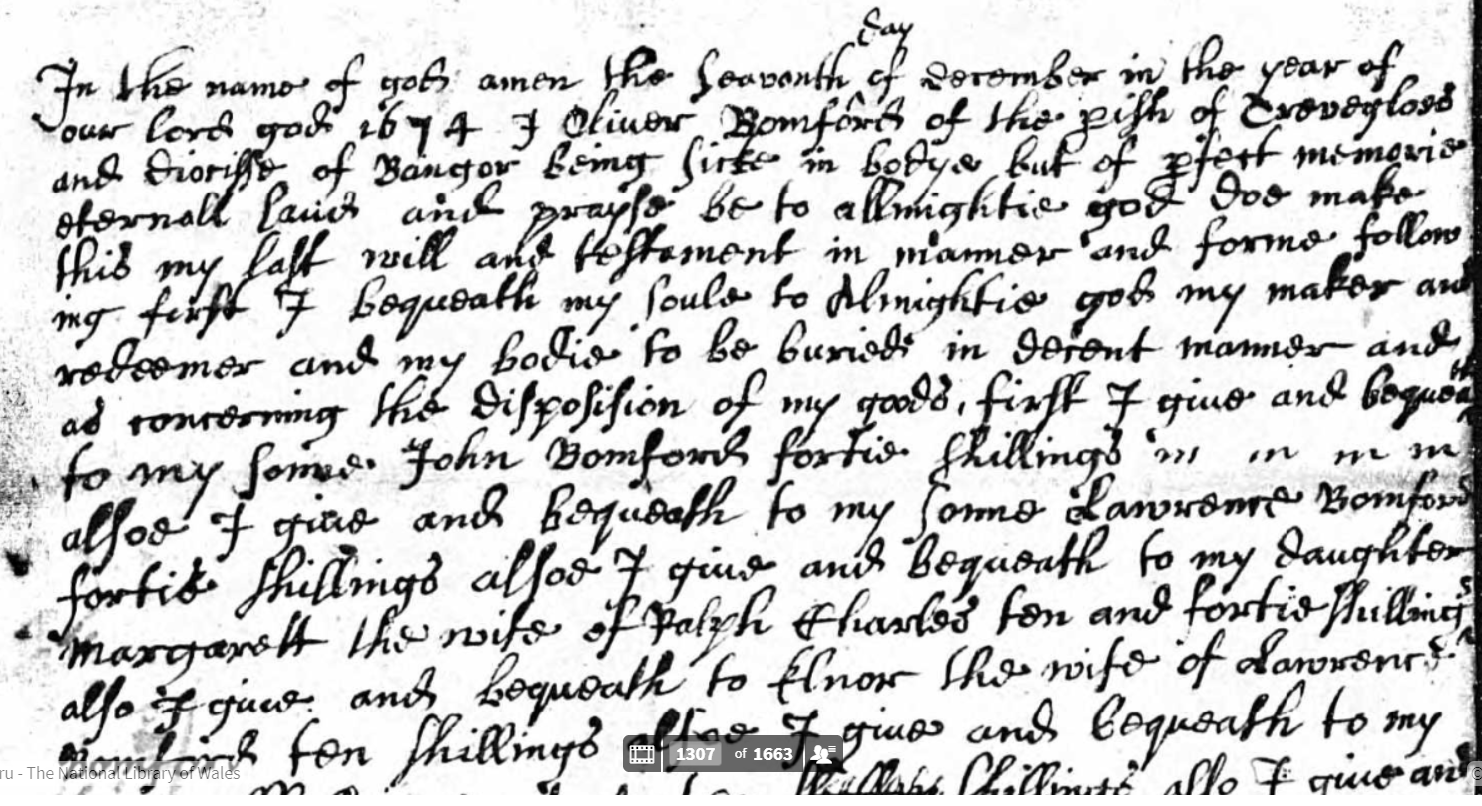 day
In the name of god amen the Seavonth of december in the year of
our lord god 1674 I Oliver Bomford of the pish of Trevegloes
and diocisse of Bangor being sicke in bodye but of pfect memorie
eternall laud and prayse be to allmightie god doe make
this my last will and testament in manner and forme follow
ing first I bequeath my soule to Almightie god my maker and
redeemer and my bodie to be buried in decent manner and
as concerning the disposision of my goods, first I give and bequeath
to my sonne John Bomford fortie shillings
allsoe I give and bequeath to my sonne Lawrence Bomford
fortie shillings allsoe I give and bequeath to my daughter
Margarett the wife of Ralph Charles ten and fortie shillings
also I give and bequeath to Elnor the wife of Lawrence
Bomford ten shillings allsoe I give and bequeath to my
shillings also I give and
1307 of 1663
ru - The National Library of Wales